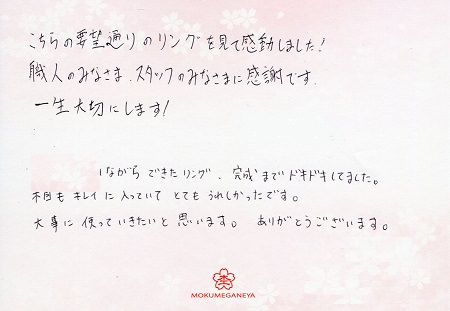 こちらの要望通りのリングを見て感動しました!
職人のみなさま、スタッフのみなさまに感謝です。
一生大切にします!
1ながら できたリング、完成までドキドキしてました。
木目も キレイに入っていて とても うれしかったです。
大事に使っていきたいと思います。 ありがとうございます。
MOKUMEGANEYA